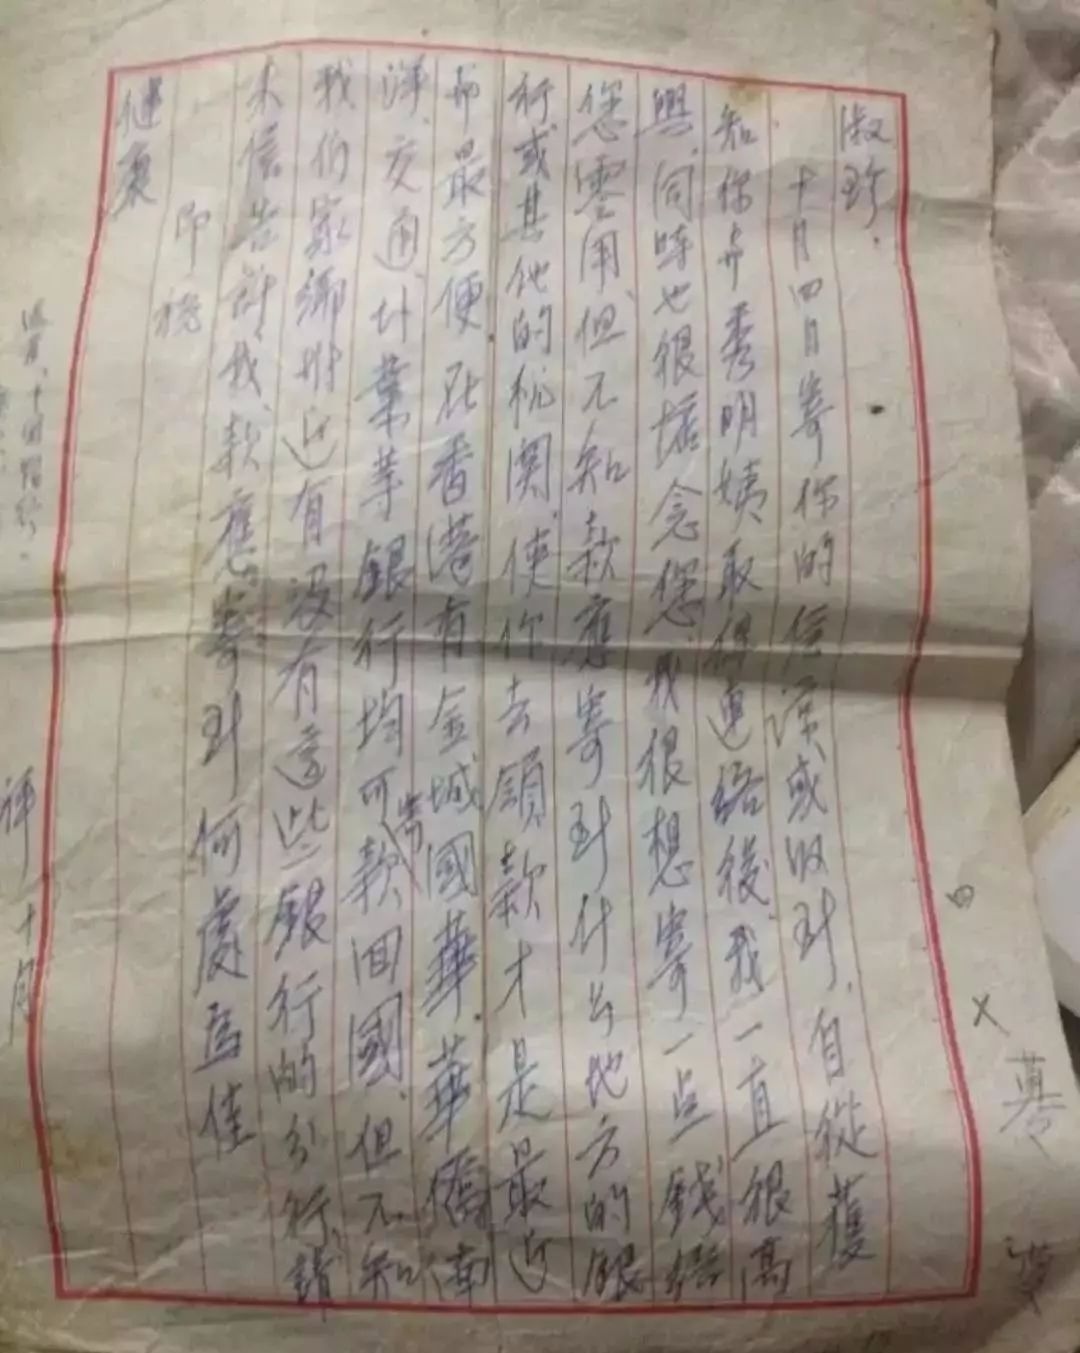 淑珍：
十月四日寄你的信諒或收到，自從獲
知你与秀明姨取得連絡後，我一直很高
興，同時也很惦念您，我很想寄一点錢給
您零用，但不知款應寄到什么地方的銀
行或其他的机関，使你去領款才是最近
而最方便，在香港有金城國華、華僑南
洋、交通、廿業等銀行均可寄款回國，但不知
我们家鄉附近有沒有這些銀行的分行，請
來信告訴我，款應寄到何處為佳
即 祝
健康
祥 十月